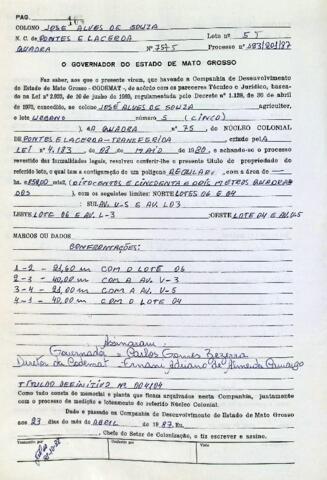 PAG. 16
COLONO JOSÉ ALVES DE SOUZA
N. C. de PONTES E LACERDA Lote n.o 5 T
QUADRA Nº 75-T5 Processo n.o 483/201/87
O GOVERNADOR DO ESTADO DE MATO GROSSO
Faz saber, aos que a presente virem, que havendo a Companhia de Desenvolvimento
do Estado de Mato Grosso - CODEMAT -, de acôrdo com os pareceres Técnico e Jurídico, basea-
da na Lei n.o 2.923, de 20 de junho de 1969, regulamentada pelo Decreto n.o 1.128, de 20 de abril
de 1970, concedido, ao colono JOSÉ ALVES DE SOUZA agricultor,
o lote URBANO n.o 5 (CINCO)
), da QUADRA nº 75, do NÚCLEO COLONIAL
DE PONTES E LACERDA-TRANSFERIDA criado pela
LEI nº 4.183, de 03 de MAIO de 1980, e achando-se o processo
revestido das formalidades legais, resolveu conferir-lhe o presente título de propriedade do
referido lote, o qual tem a configuração de um polígono REGULAR, com a área de
ha 852,00 mts2, (OITOCENTOS E CINCOENTA E DOIS METROS QUADRA
DOS), com os seguintes limites: NORTE LOTES 06 E 04
: SUL AV. V-5 E AV. L03
LESTE LOTE 06 E AV. L-3 :OESTE LOTE 04 E AV. V-5
MARCOS OU DADOS
CONFRONTAÇÕES:
1-2 - 21,60 m COM O LOTE 06
2-3 - 40,00 m COM A AV. V-3
3-4 - 21,00 m COM A AV. V-5
4-1 - 40,00 m COM O LOTE 04
Assinaram:
Governador = Carlos Gomes Bezerra
Diretor da Codemat - Ernani Adriano de Almeida Camargo
TÍTULO DEFINITIVO Nº 004104
Como tudo consta do memorial e planta que ficam arquivados nesta Companhia, juntamente
com o processo de medição e loteamento do referido Núcleo Colonial.
Dado e passado na Companhia de Desenvolvimento do Estado de Mato Grosso
aos 23 dias do mês de ABRIL de 1987. Eu,
, Chefe do Setor de Colonização, o fiz escrever e assino.